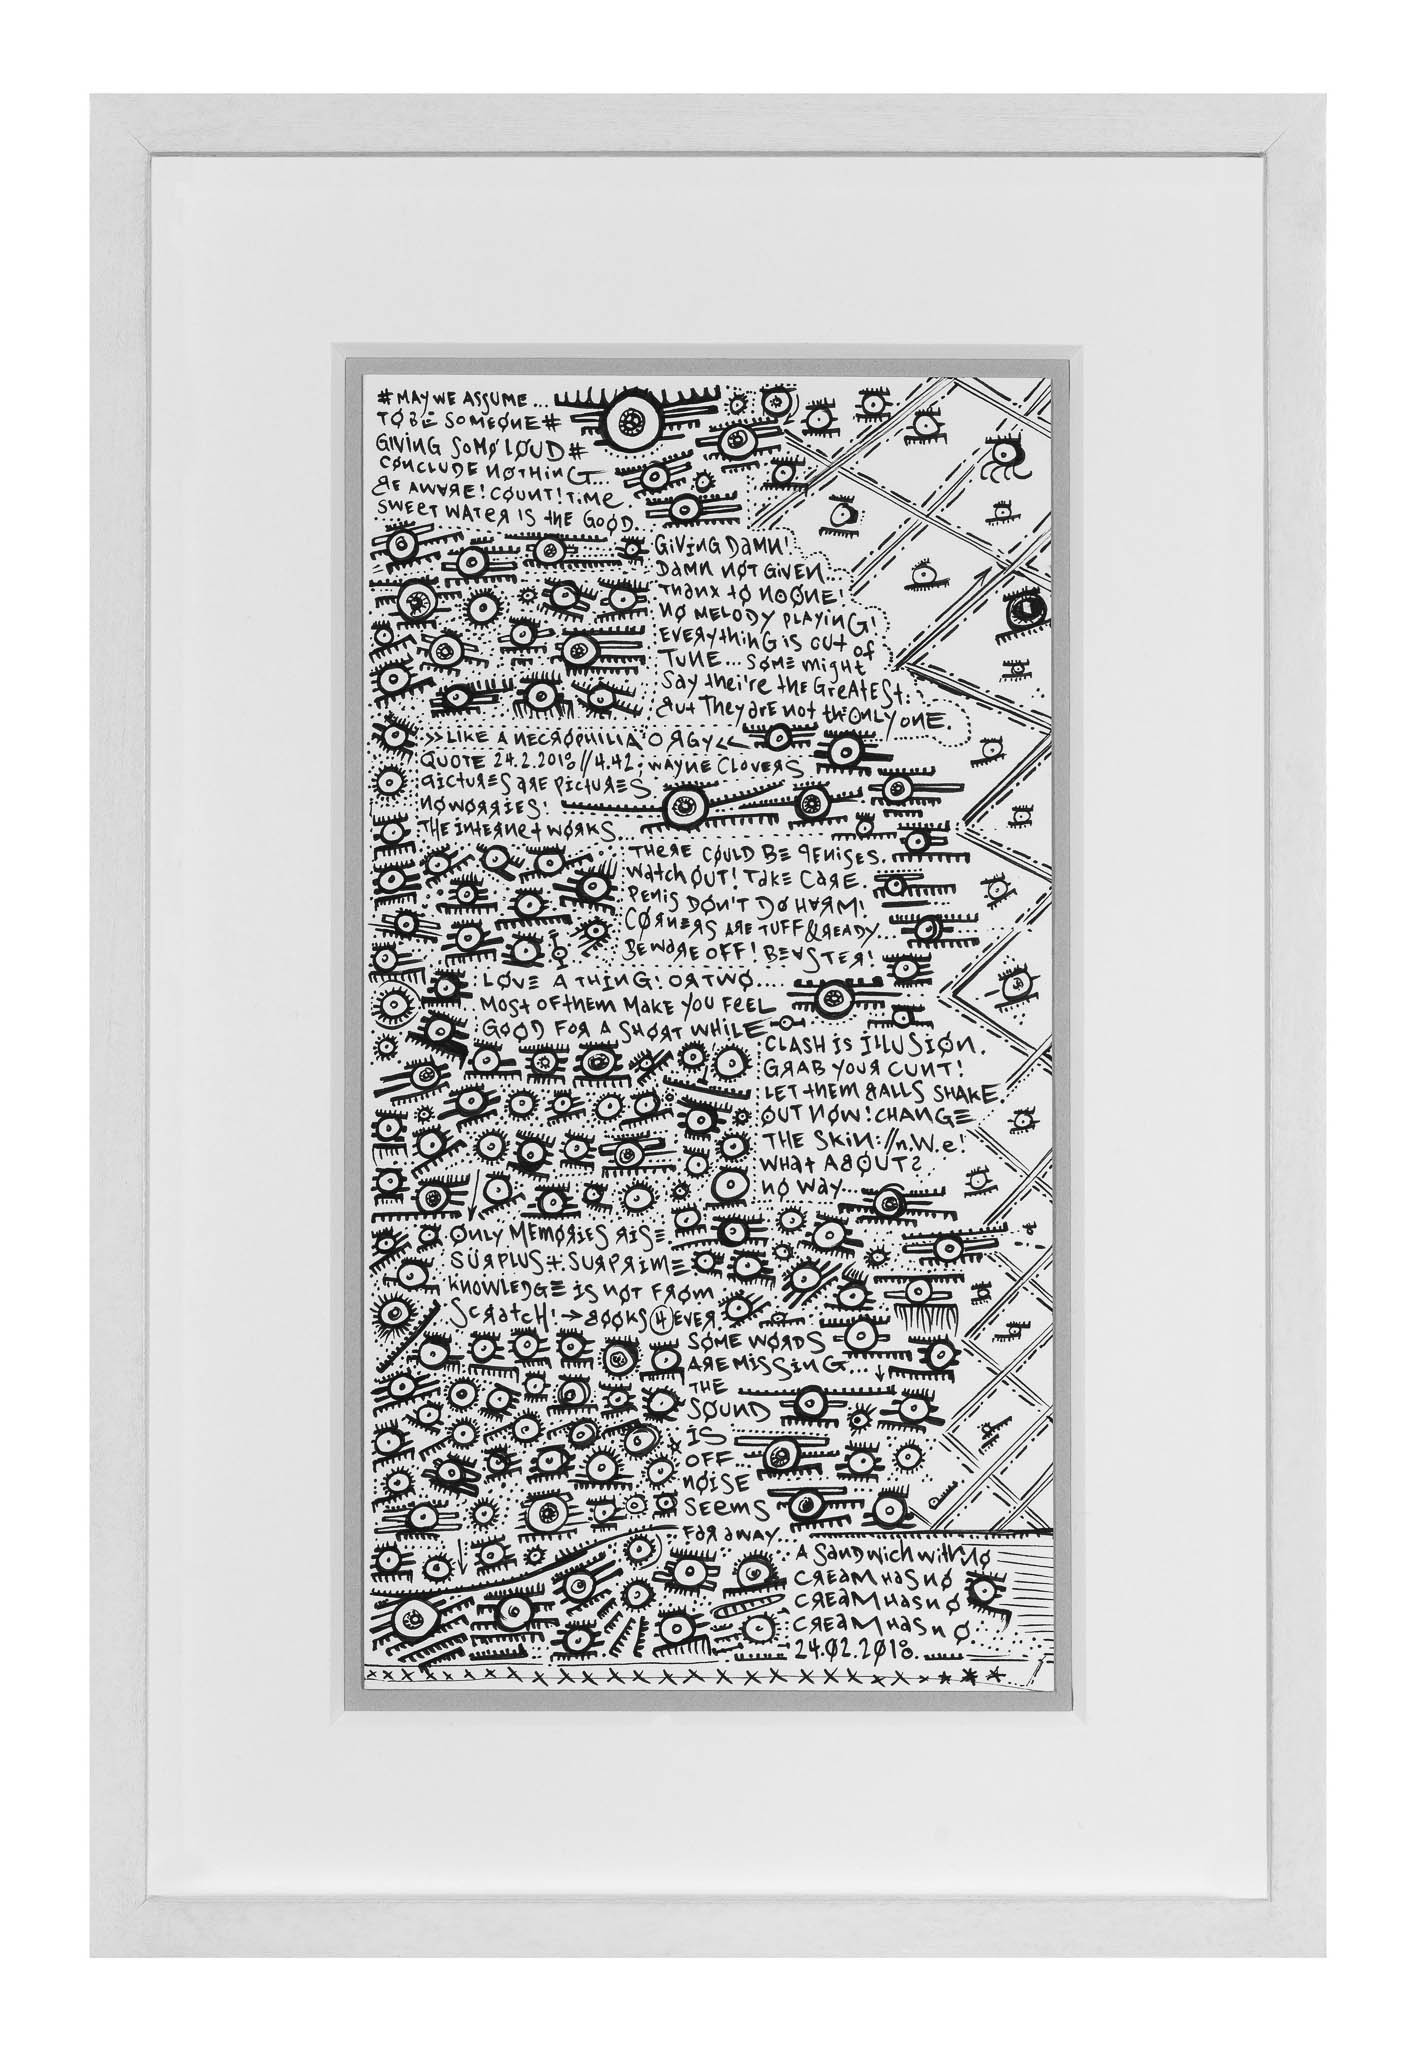 #MAY WE ASSUME...
TO BE SOMEONE#
GIVING SOMO LOUD#
CONCLUDE NOTHING...
BE AWARE! COUNT! TIME
SWEET WATER IS THE GOOD.
GIVING DAMN!
DAMN NOT GIVEN...
THANX TO NOONE!
NO MELODY PLAYING!
EVERYTHING IS OUT OF
TUNE... SOME MIGHT
SAY THEI'RE THE GREATEST:
BUT THEY ARE NOT THE ONLY ONE.
>>LIKE A NECROPHILIA ORGY<<
QUOTE 24.2.2018//4.42. WAYNE CLOVERS
PICTURES ARE PICTURES
NO WORRIES!
THE INTERNET WORKS...
THERE COULD BE PENISES.
WATCH OUT! TAKE CARE.
PENIS DON'T DO HARM!
CORNERS ARE TUFF&READY...
BEWARE OFF! BEASTER!
LOVE A THING! OR TWO....
MOST OF THEM MAKE YOU FEEL
GOOD FOR A SHORT WHILE
CLASH IS ILLUSION.
GRAB YOUR CUNT!
LET THEM BALLS SHAKE.
OUT NOW! CHANGE
THE SKIN://n.W.e!
WHAT ABOUT?
NO WAY...
ONLY MEMORIES RISE
SÜRPLUS+SURPRIME
KNOWLEDGE IS NOT FROM
SCRATCH!→BOOKS 4 EVER
SOME WORDS
ARE MISSING...
THE
SOUND
IS
OFF
NOISE
SEEMS
FAR AWAY...
A SANDWICH WITH NO
CREAM HAS NO
CREAM HAS NO
CREAM HAS NO
24.02.2018.